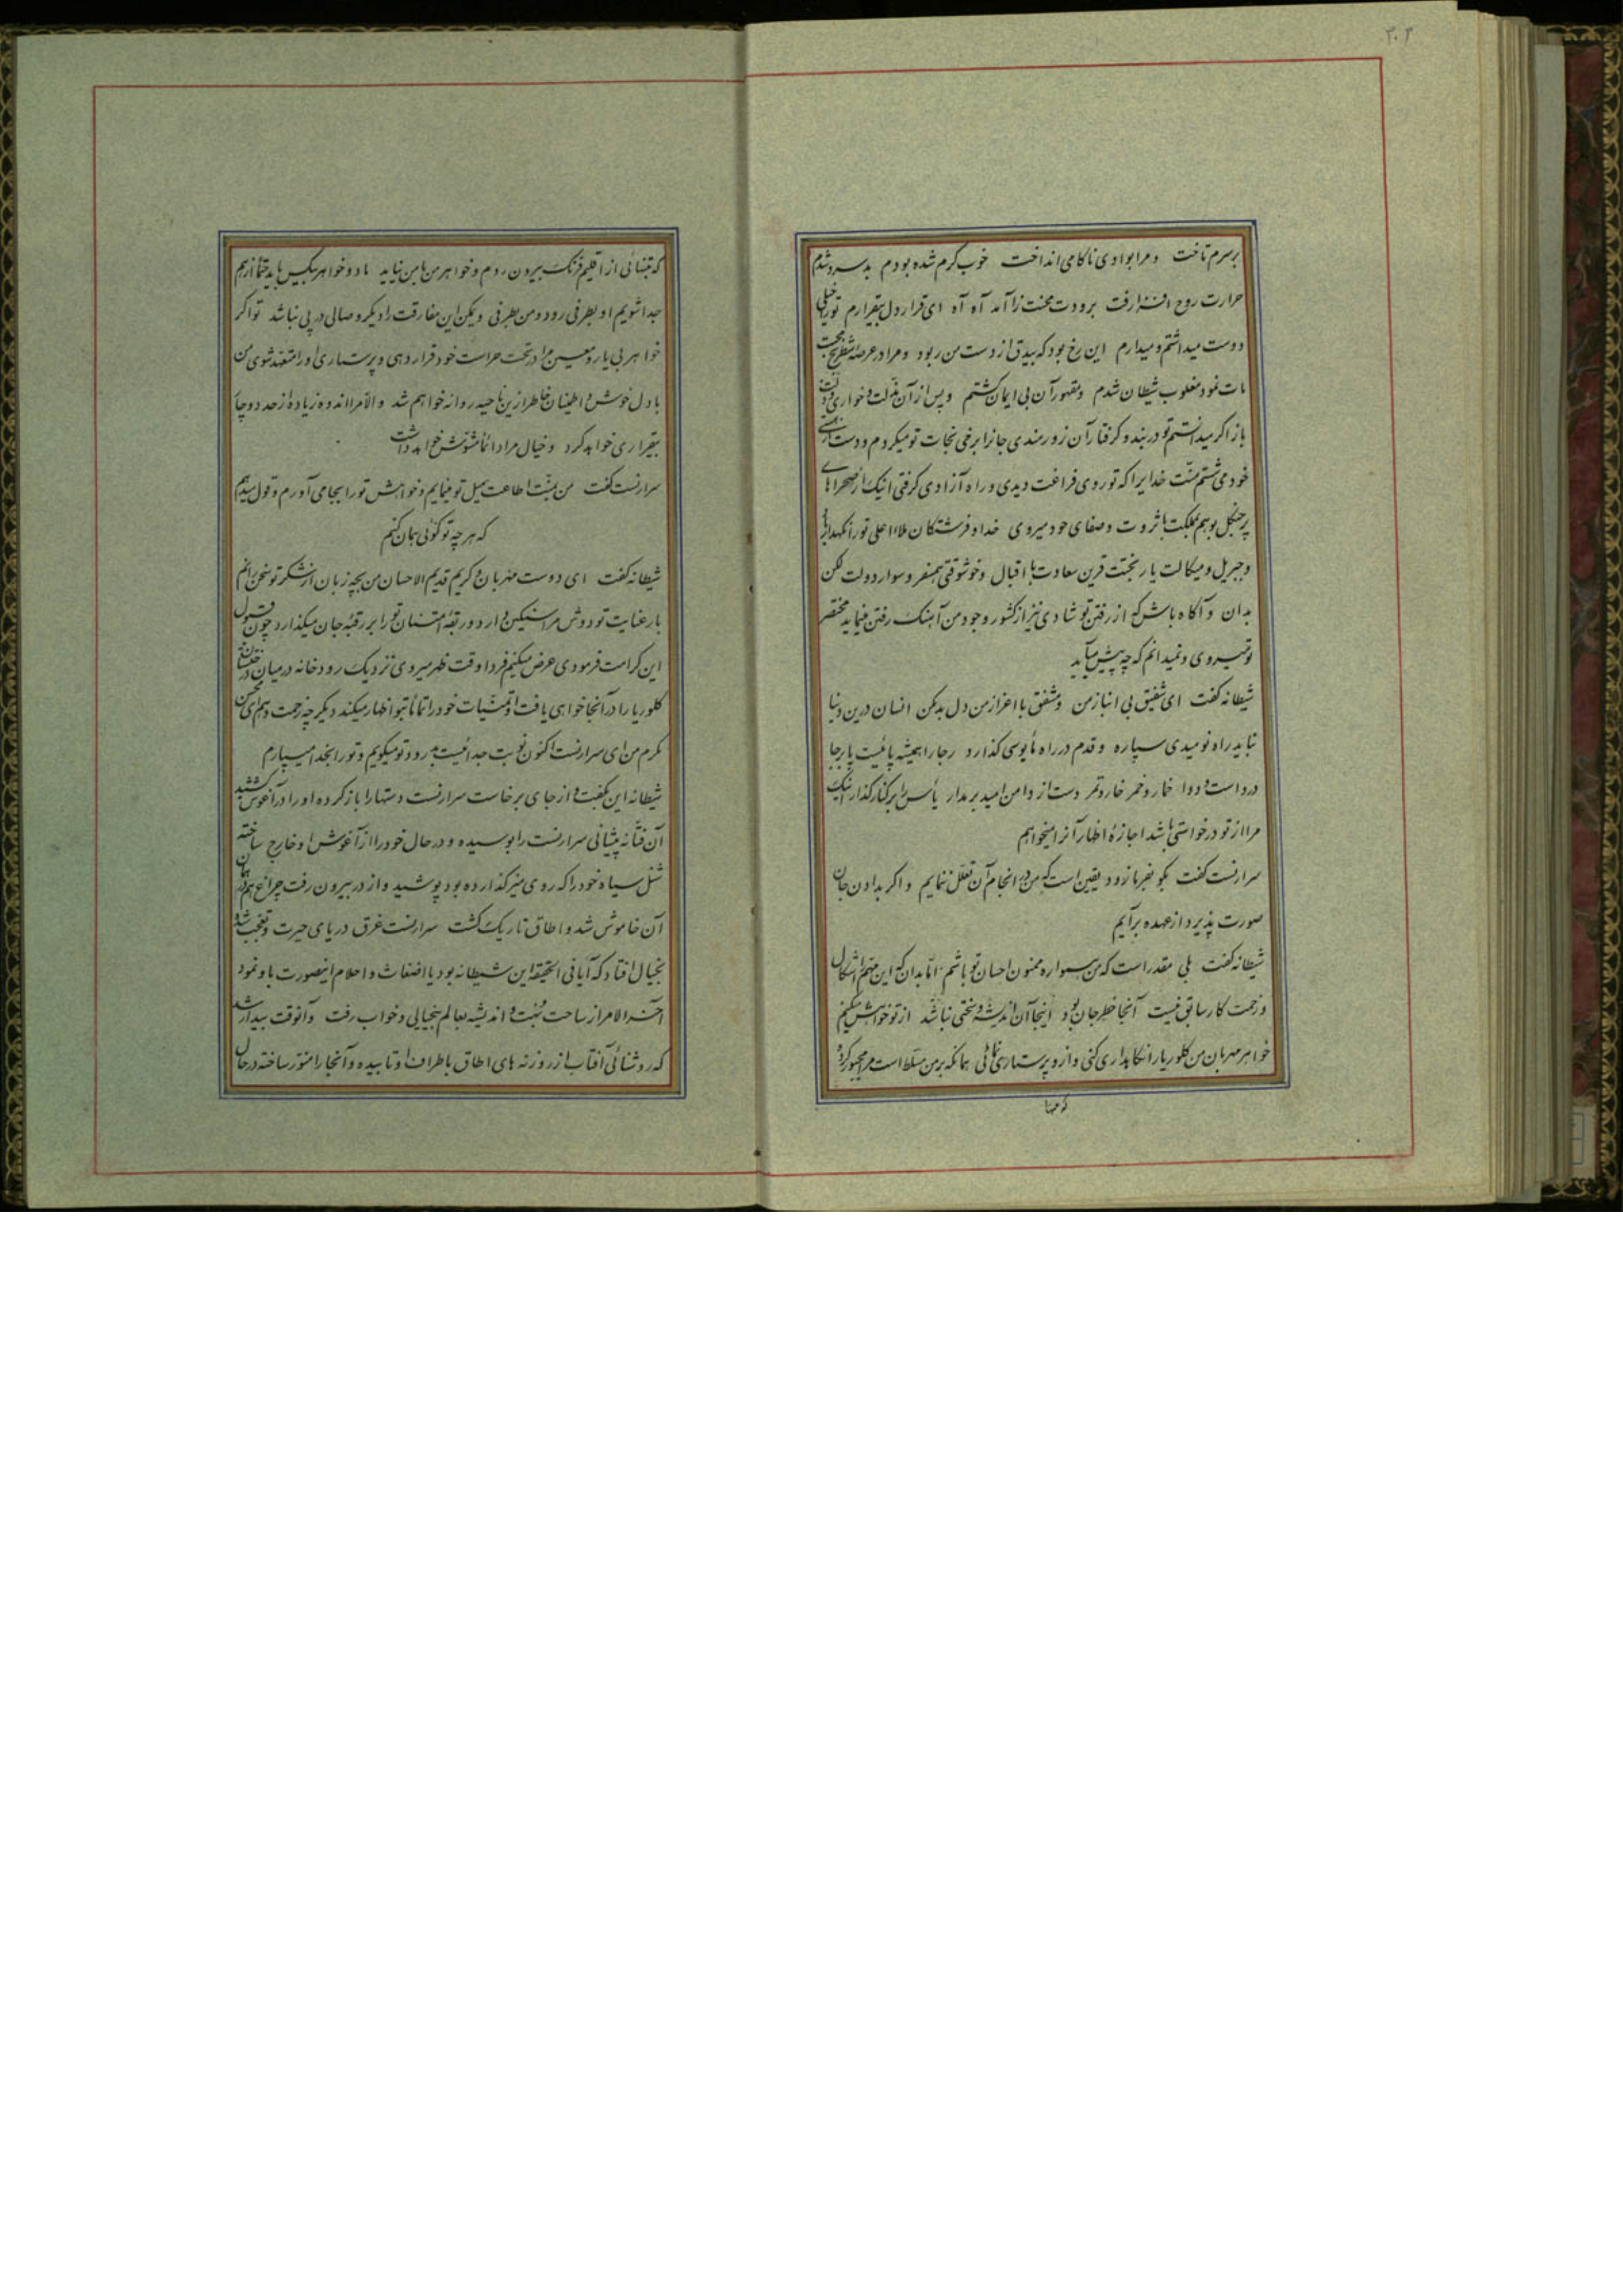 ۳۰۲
برسرم تاخت و مرا بوادی ناکامی انداخت خوب گرم شده بودم بد سرد شدم
حرارت روح افزا رفت برودت محنت زا آمد آه آه ای قرار دل بیقرارم تو را خیلی
دوست میداشتم و میدارم این رخ بود که بیدق از دست من ربود و مرا در عرصه شطرنج محبت
مات نمود مغلوب شیطان شدم و مقهور آن بی ایمان گشتم و پس از آن مذلت و خواری
باز اگر میدانستم تو در بند و گرفتار آن زورمندی جانرا برخی نجات تو میکردم و دست از
خود می شستم منت خدایرا که تو روی فراغت دیدی و راه آزادی گرفتی اینک از صحراهای
پر جنگل بوهم بمملکت با ثروت و صفای خود میروی خدا و فرشتگان ملاء اعلی تو را نگهدار
و جبریل و میکالت یار بختت قرین سعادت با اقبال و خوشوقتی همسفر و سوار دولت لکن
بدان و آگاه باش که از رفتن تو شادی نیز از کشور وجود من آهنگ رفتن مینماید مختصر
تو میروی و نمیدانم که چه پیش میآید
شیطانه گفت ای شفیق بی انباز من و مشفق با اعزاز من دل بد مکن انسان درین دنیا
نباید راه نومیدی سپاره و قدم در راه مأیوسی گذارد رجا را همیشه پائیست پا برجا
درد است و دوا خمار و خمر خار و تمر دست از دامن امید بر مدار یأس را برکنار گذار اینک
مرا از تو درخواستی باشد اجازهٔ اظهار آنرا میخواهم
سرارنست گفت بگو بفرما زود یقین است که من در انجام آن تعلل ننمایم و اگر بدادن جان
صورت پذیرد از عهده برآیم
شیطانه گفت بلی مقدر است که من همواره ممنون احسان تو باشم اما بدان که این مهم را اشکال
و زحمت کار سابق نیست آنجا خطر جان بود اینجا آن اندیشه و سختی نباشد از تو خواهش میکنم
خواهر مهربان من کلوریا را نگاهداری کنی و از او پرستاری نمائی همانکه بر من مسلط است مرا مجبور کرده
که تنها
که تنهائی از اقلیم فرنگ بیرون روم و خواهر من با من نیاید ما دو خواهر بیکس باید حتماً از هم
جدا شویم او بطرفی رود و من بطرفی ولیکن این مفارقت را دیگر وصالی در پی نباشد تو اگر
خواهر بی یار و معین مرا در تحت حراست خود قرار دهی و پرستاری او را متعهد شوی من
با دل خوش و اطمینان خاطر ازین ناحیه روانه خواهم شد و الا مرا اندوه زیاده از حد دوچار
بیقراری خواهد کرد و خیال مرا دائماً مشوش خواهد داشت
سرارنست گفت من بمنت اطاعت میل تو مینمایم و خواهش تو را بجا می آورم و قول میدهم
که هر چه تو گوئی همان کنم
شیطانه گفت ای دوست مهربان و کریم قدیم الاحسان من بچه زبان از تشکر تو سخن رانم
بار عنایت تو دوش مرا سنگین دارد و ربقهٔ امتنان تو را بر رقبهٔ جان میگذارد چون قبول
این کرامت فرمودی عرض میکنم فردا وقت ظهر میروی نزدیک رودخانه در میان درختستان
کلوریا را در آنجا خواهی یافت او متمنیات خود را تماماً بتو اظهار میکند دیگر چه زحمت دهم ای
مکرم من ای سرارنست اکنون نوبت جدائیست بدرود تو میگویم و تو را بخدا میسپارم
شیطانه این بگفت و از جای برخاست سرارنست دستها را باز کرده او را در آغوش کشید
آن فتانه پیشانی سرارنست را بوسیده و در حال خود را از آغوش او خارج ساخته
شنل سیاه خود را که روی میز گذارده بود پوشید و از در بیرون رفت چراغ هم در همان
آن خاموش شد و اطاق تاریک گشت سرارنست غرق دریای حیرت و تعجب شد
بخیال افتاد که آیا فی الحقیقه این شیطانه بود یا اضغاث و احلام اینصورت باو نمود
آخر الامر از ساحت و اندیشه بعالم بیخیالی و خواب رفت و آنوقت بیدار شد
که روشنائی آفتاب از روزنه های اطاق باطراف او تابیده و آنجا را منور ساخته در حال